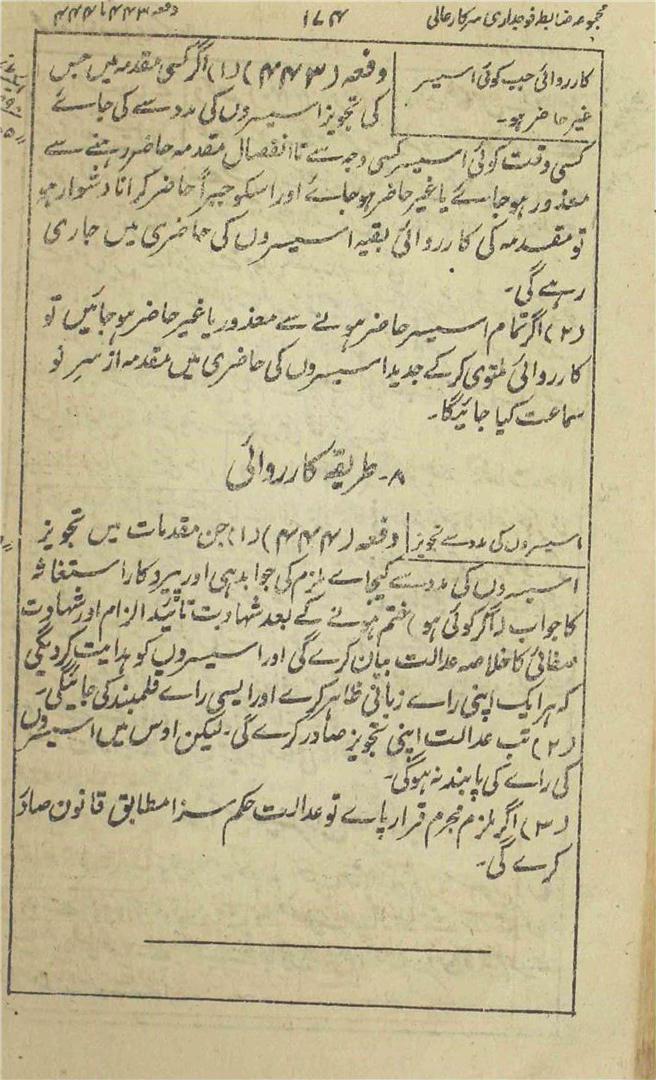 مجموعہ ضابطہ فوجداری سرکار عالی ۱۷۴ دفعہ ۴۴۳ تا ۴۴۴
کارروائی جب کوئی اسیسر
غیر حاضر ہو۔
دفعہ (۴۴۳) (۱) اگر کسی مقدمہ میں جس
کی تجویز اسیسروں کی مدد سے کی جائے
کسی وقت کوئی اسیسر کسی وجہ سے تا انفصال مقدمہ حاضر رہنے سے
معذور ہو جائے یا غیر حاضر ہو جائے اور اسکو جبراً حاضر کرانا دشوار ہو
تو مقدمہ کی کارروائی بقیہ اسیسروں کی حاضری میں جاری
رہے گی۔
(۲) اگر تمام اسیسر حاضر ہونے سے معذور یا غیر حاضر ہو جائیں تو
کارروائی ملتوی کر کے جدید اسیسروں کی حاضری میں مقدمہ از سر نو
سماعت کیا جائیگا۔
۸۔ طریقہ کارروائی
اسیسروں کی مدد سے تجویز
دفعہ (۴۴۴) (۱) جن مقدمات میں تجویز
اسیسروں کی مدد سے کیجاے ملزم کی جوابدہی اور پیروکار استغاثہ
کا جواب (اگر کوئی ہو) ختم ہونے کے بعد شہادت تائید الزام اور شہادت
صفائی کا خلاصہ عدالت بیان کرے گی اور اسیسروں کو ہدایت کردیگی
کہ ہر ایک اپنی راے زبانی ظاہر کرے اور ایسی راے قلمبند کی جائیگی۔
(۲) تب عدالت اپنی تجویز صادر کرے گی۔ لیکن اوس میں اسیسروں
کی راے کی پابند نہ ہوگی۔
(۳) اگر ملزم مجرم قرار پاے تو عدالت حکم سزا مطابق قانون صادر
کرے گی۔